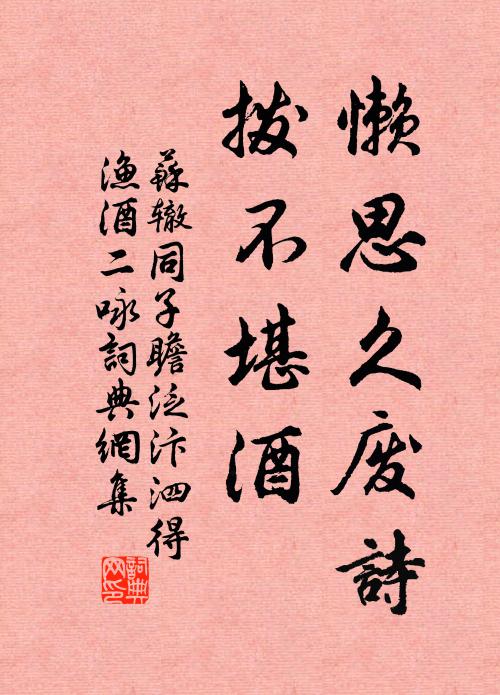 懒思久废詩
拨不堪酒
蘇辙同子瞻泛汴泗得
漁酒二咏詞典網集
詞典
网印